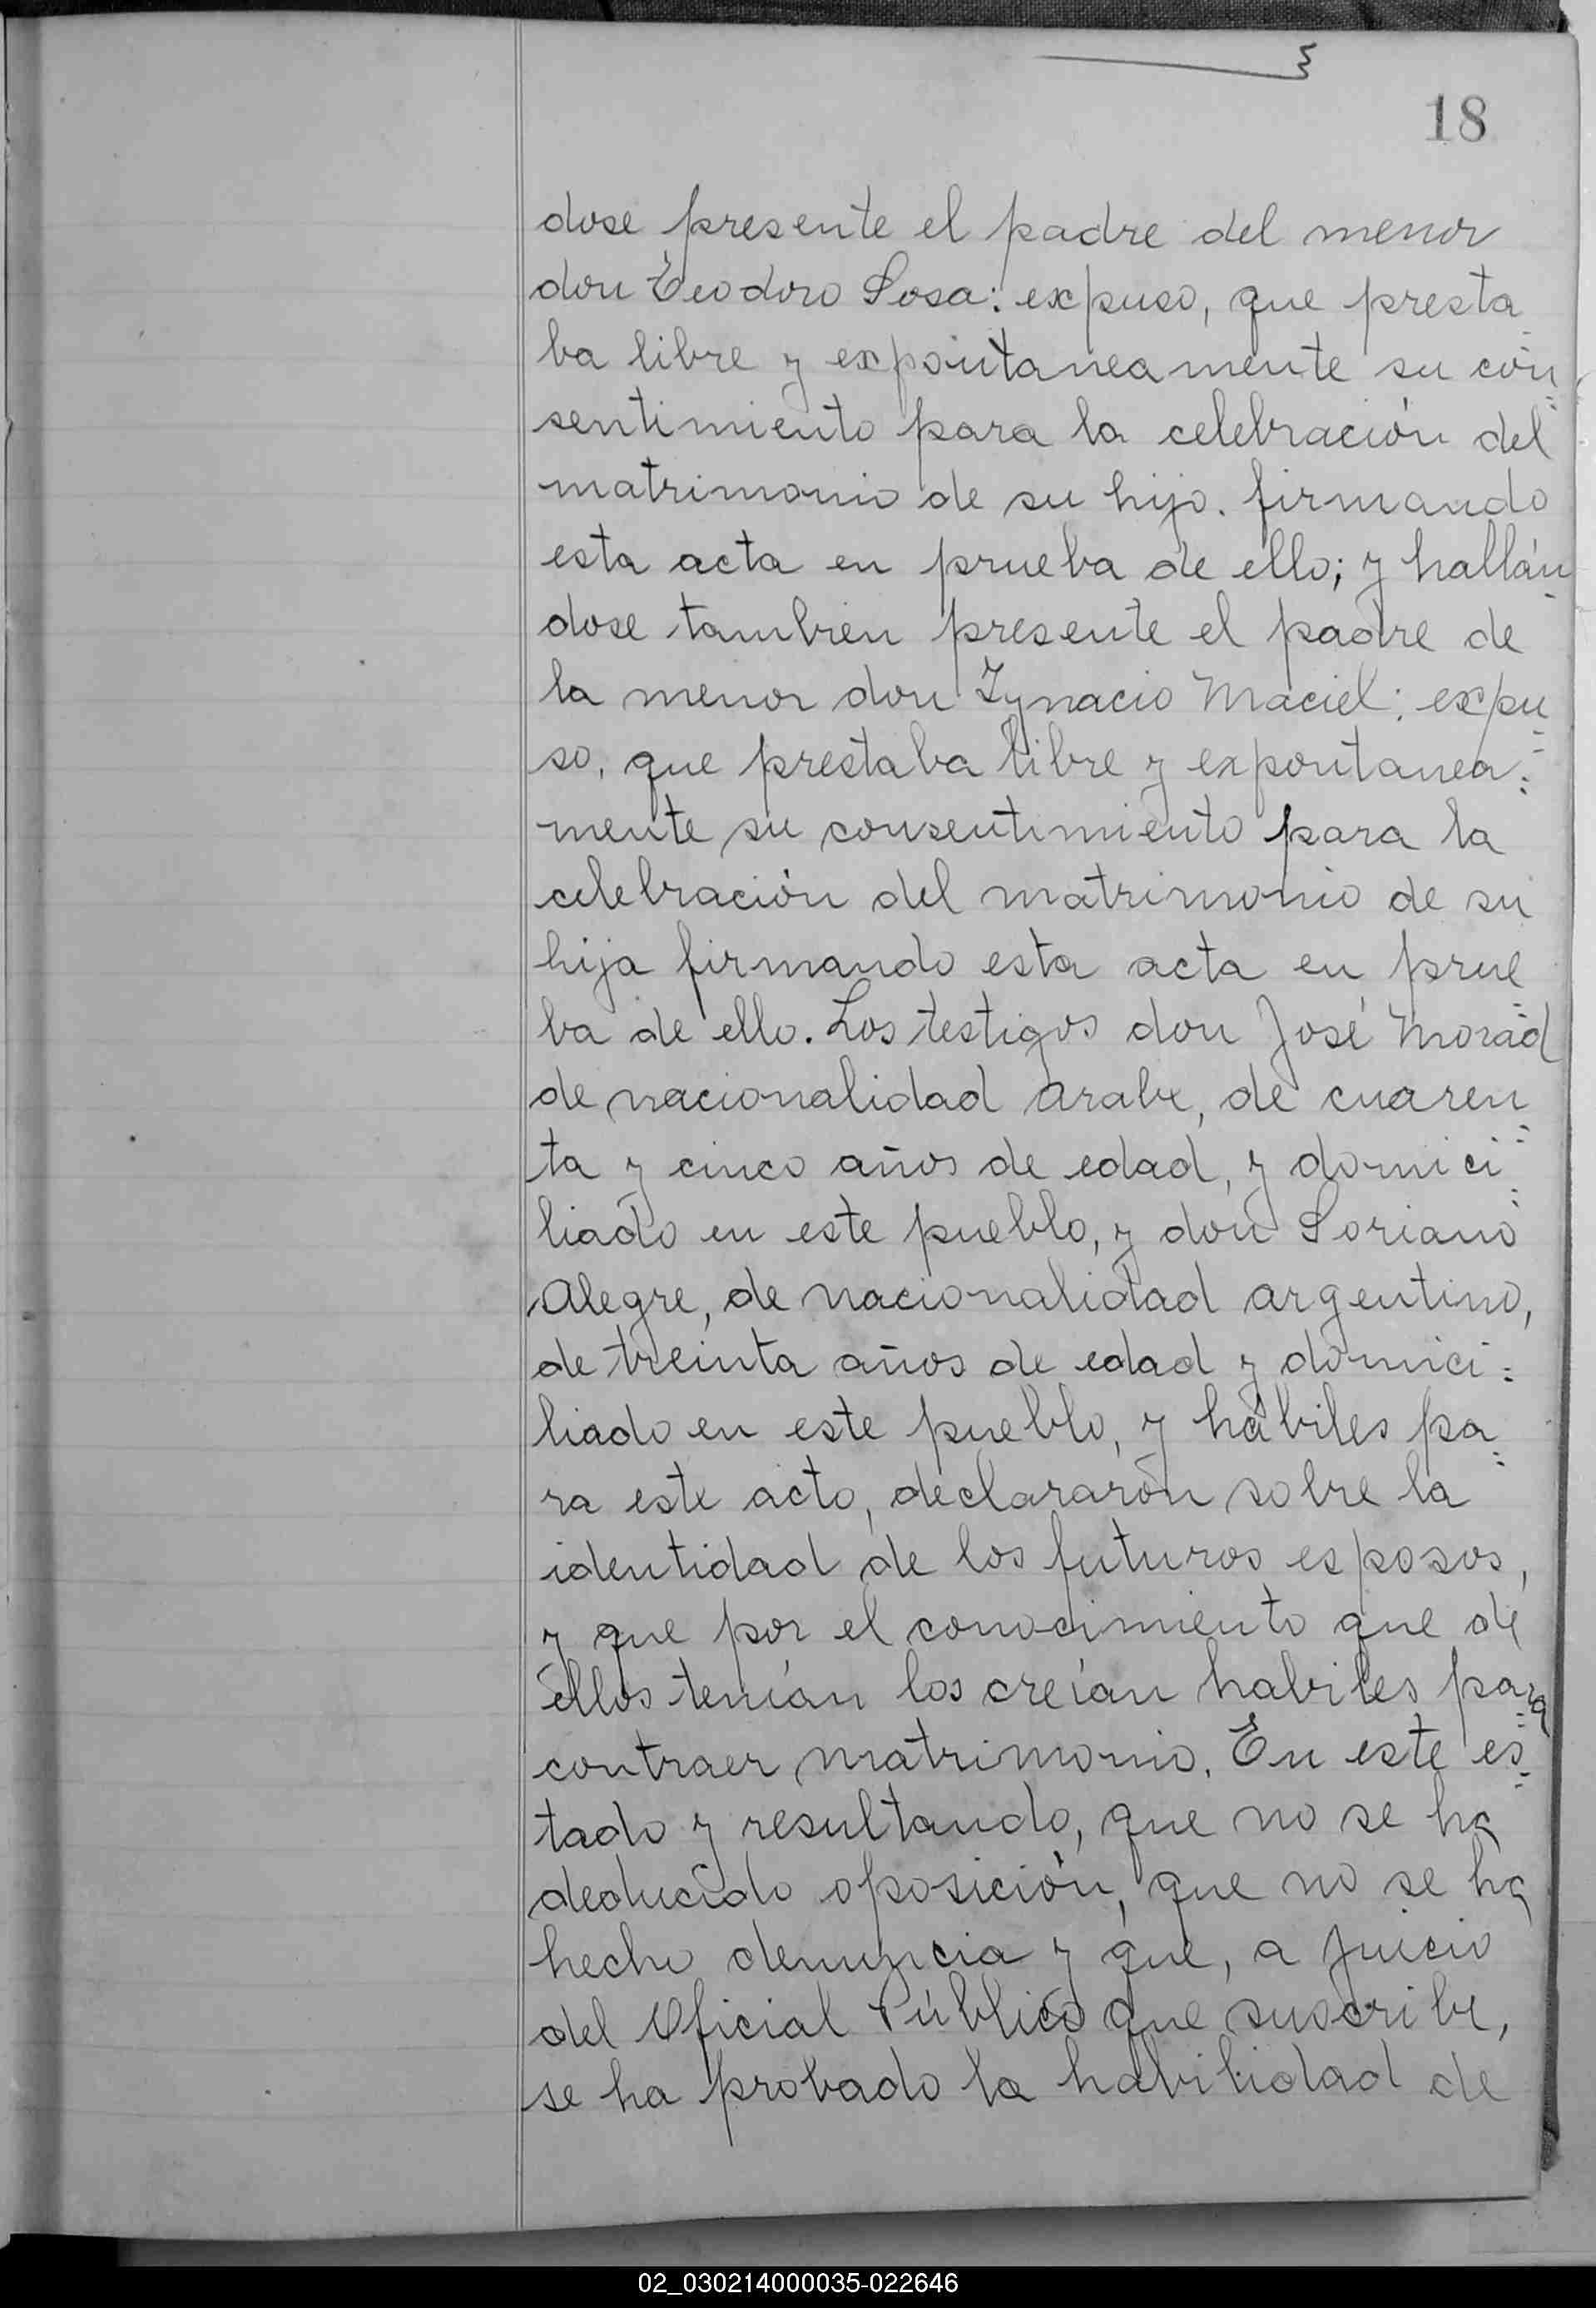 18
dose presente el padre del menor
don Teodoro Sosa: expuso, que presta
ba libre y expontaneamente su con=
sentimiento para la celebración del
matrimonio de su hijo. firmando
esta acta en prueba de ello; y hallán
dose tambien presente el padre de
la menor don Ygnacio Maciel: expu=
so, que prestaba libre y expontanea=
mente su consentimiento para la
celebración del matrimonio de su
hija firmando esta acta en prue=
ba de ello. Los testigos don José Morad
de nacionalidad arabe, de cuaren=
ta y cinco años de edad, y domici=
liado en este pueblo, y don Soriano
Alegre, de nacionalidad argentino,
de treinta años de edad y domici=
liado en este pueblo, y hábiles pa=
ra este acto, declararón sobre la
identidad de los futuros esposos,
y que por el conocimiento que de
éllos tenían los creían habiles para
contraer matrimonio. En este es=
tado y resultando, que no se ha
deducido oposición, que no se ha
hecho denuncia y que, a juicio
del Oficial Público que suscribe,
se ha probado la habilidad de
02_030214000035-022646